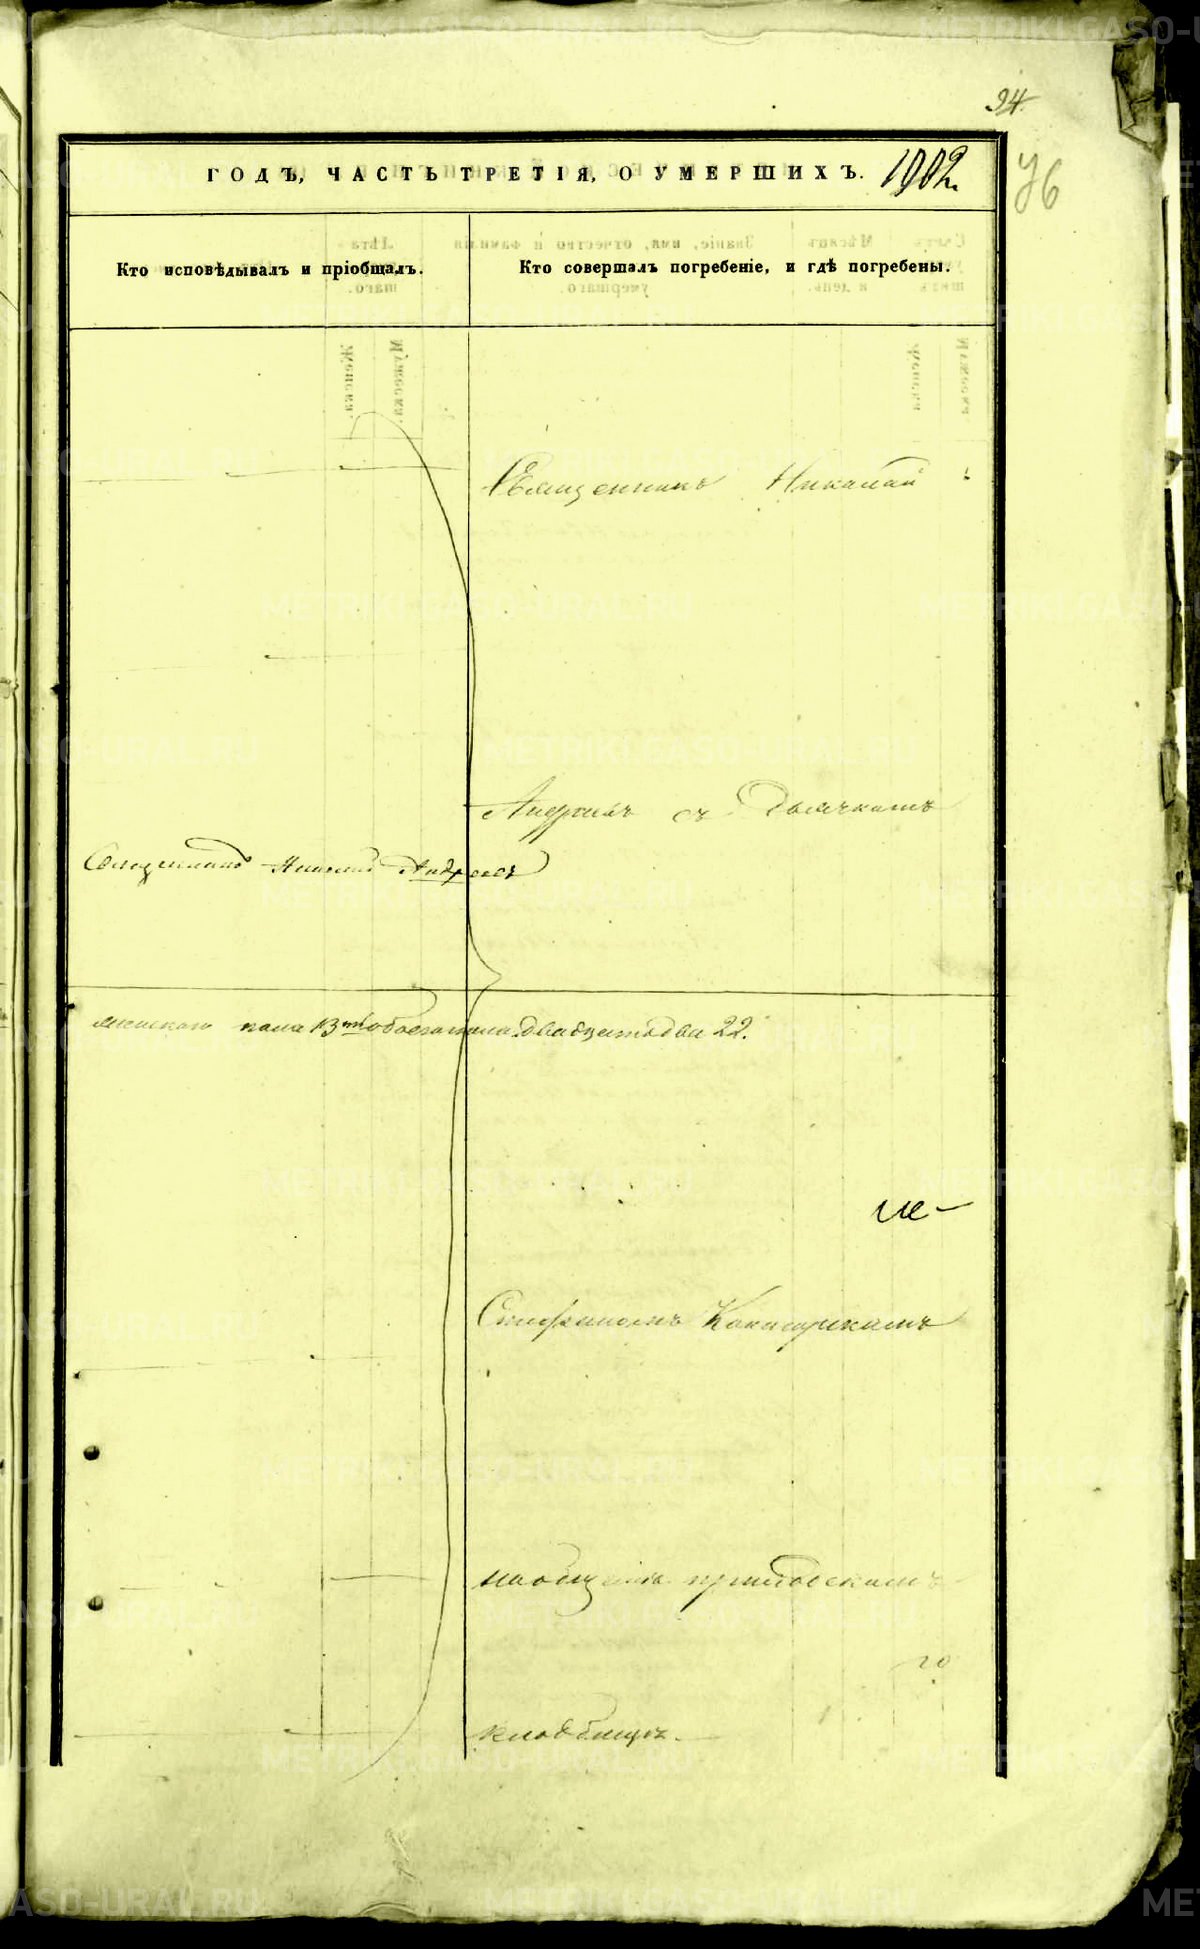 94
76
ГОДЪ, ЧАСТЬ ТРЕТІЯ, О УМЕРШИХЪ. 1902.
Кто исповѣдывалъ и пріобщалъ.
Кто совершалъ погребеніе, и гдѣ погребены.
Священникъ Николай
Андреевъ съ Дьячкомъ
Священникъ Николай Андреевъ
женскаго пола 13ть обоего пола двадцать два 22.
Стефаномъ
на общемъ приходскомъ
кладбищѣ.
METRIKI.GASO-URAL.RU